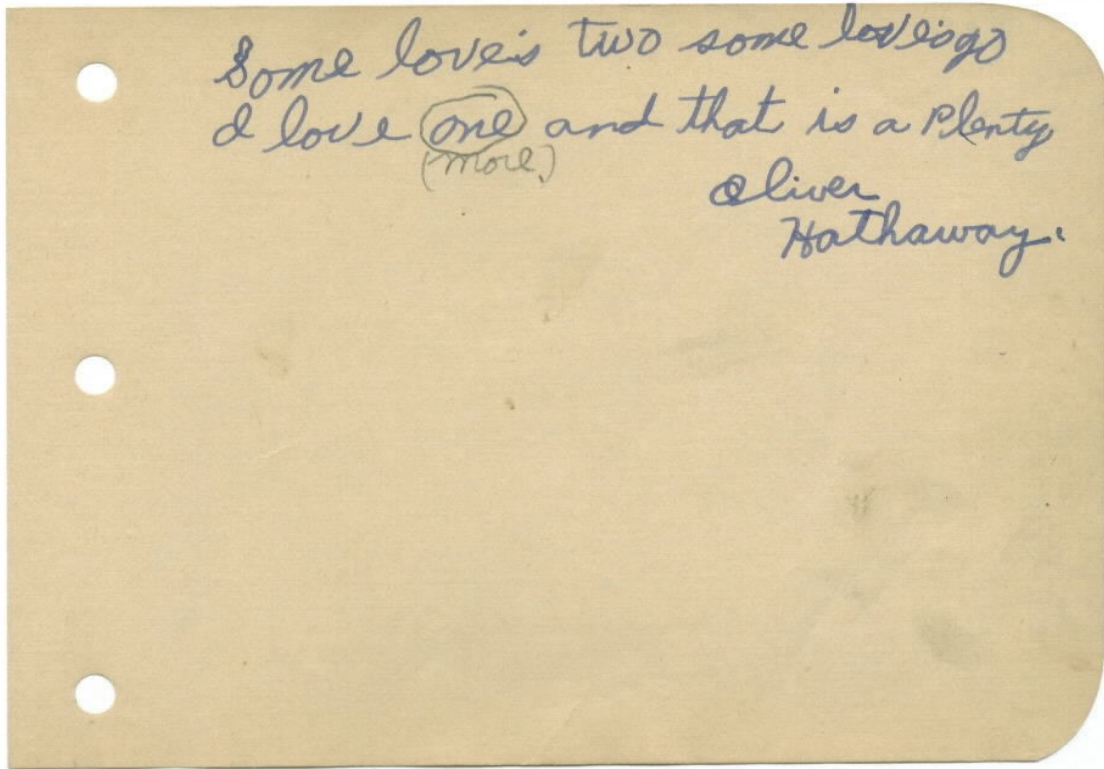 Some love's two some love's
I love one and that is a Plenty
(more)
Oliver
Hathaway.